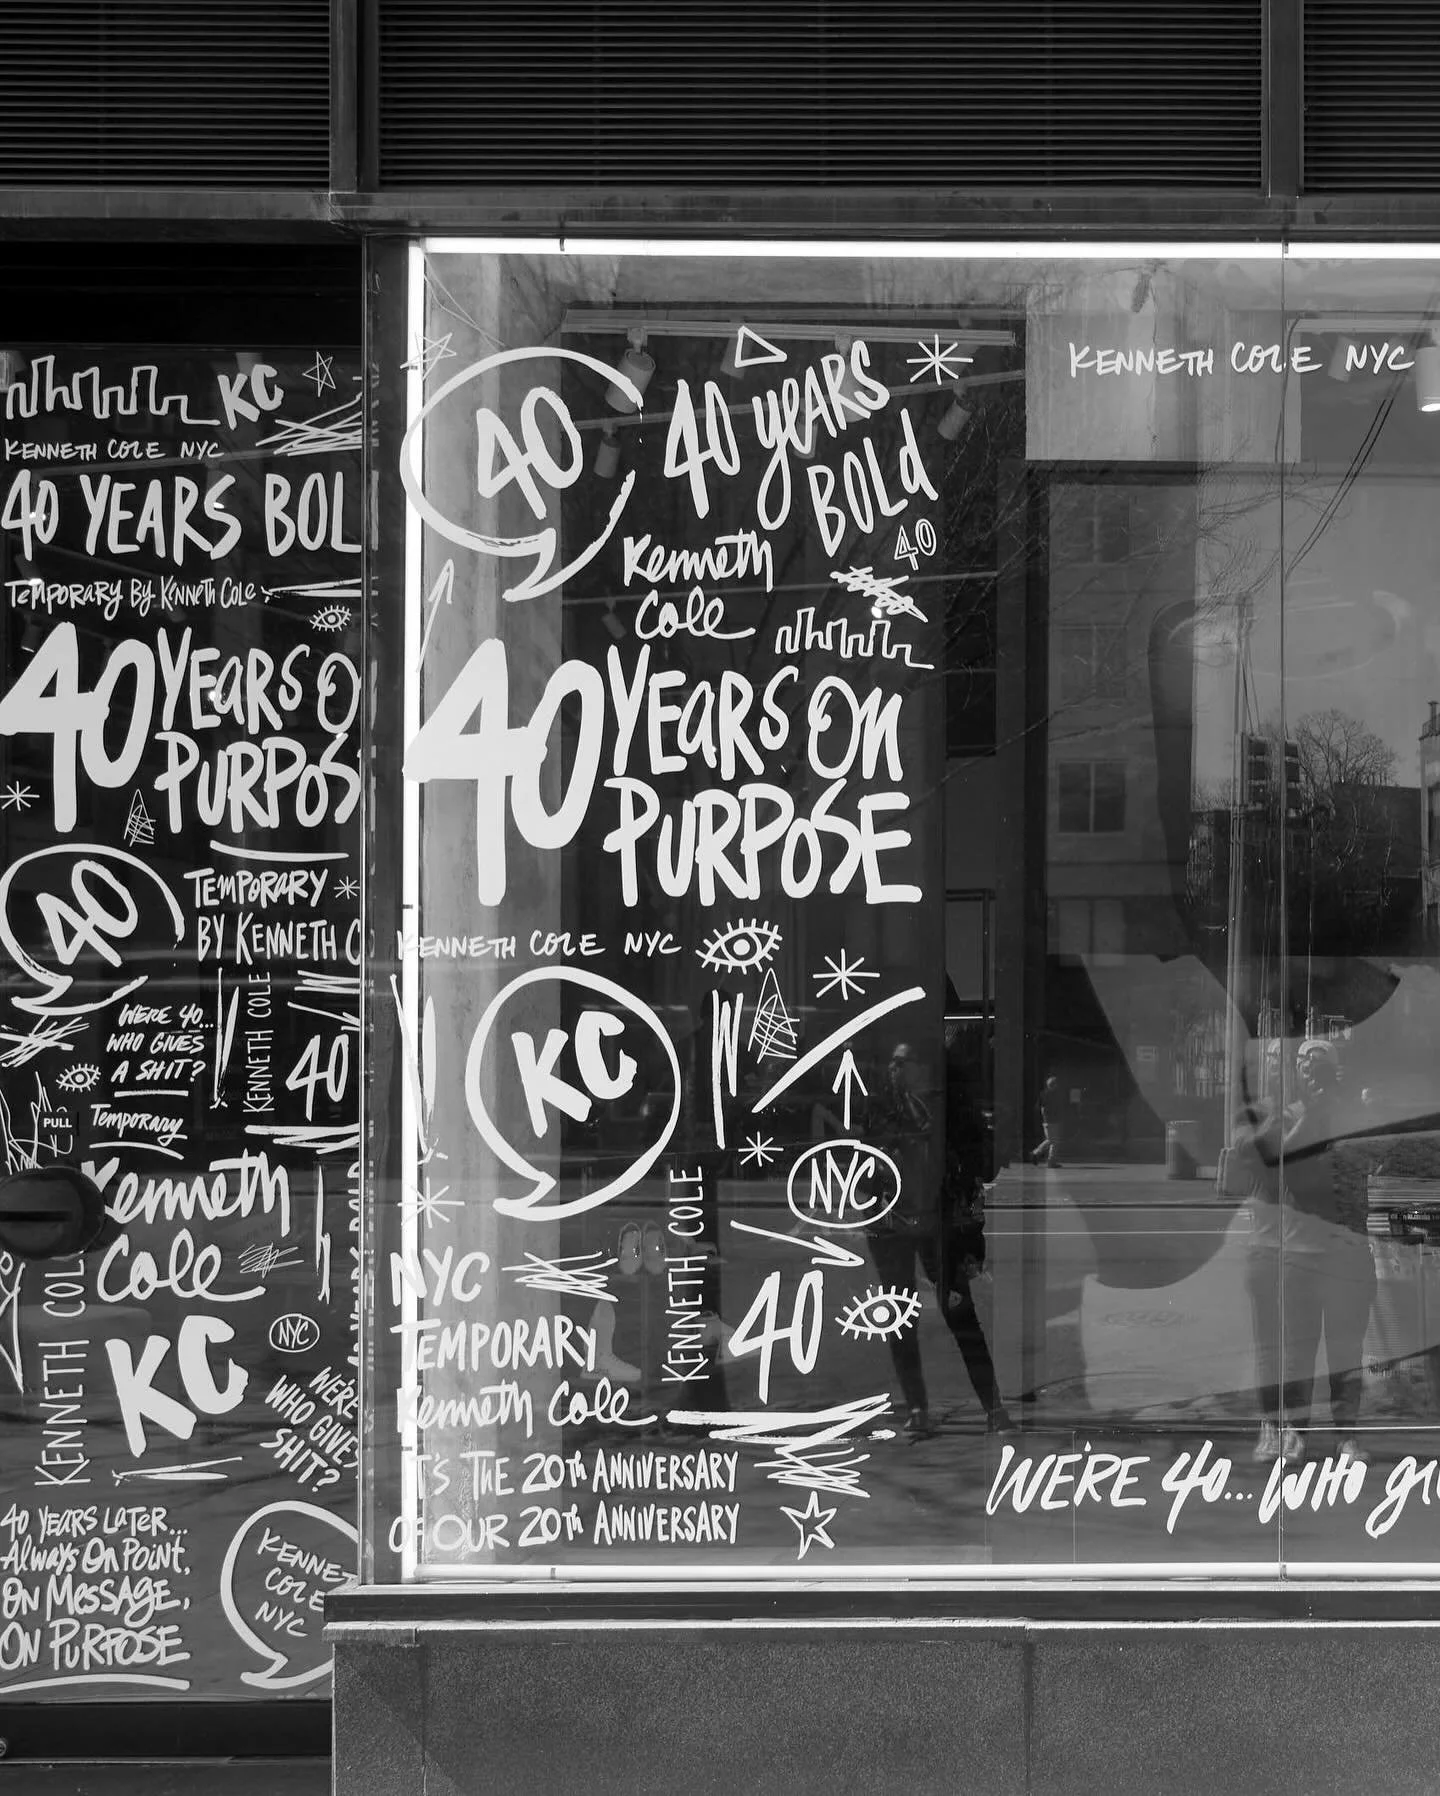 KC
KENNETH COLE NYC
40 YEARS BOL
TEMPORARY BY Kenneth Cole
40 YEARS O
PURPOS
40
TEMPORARY
BY KENNETH C
WE'RE 40...
WHO GIVES
A SHIT?
KENNETH COLE
40
PULL
Temporary
Kenneth
Cole
KENNETH COLE
KC
NYC
WE'RE
WHO GIVES
SHIT?
40 YEARS LATER...
Always On Point,
ON MESSAGE,
ON PURPOSE
KENNET
COLE
NYC
40
40 yeARS
BOLd
40
Kenneth
Cole
40 YEARS ON
PURPOSE
KENNETH COLE NYC
KC
NYC
KENNETH COLE
40
NYC
TEMPORARY
Kenneth Cole
IT'S THE 20th ANNIVERSARY
OF OUR 20th ANNIVERSARY
KENNETH COLE NYC
WE'RE 40... WHO GI